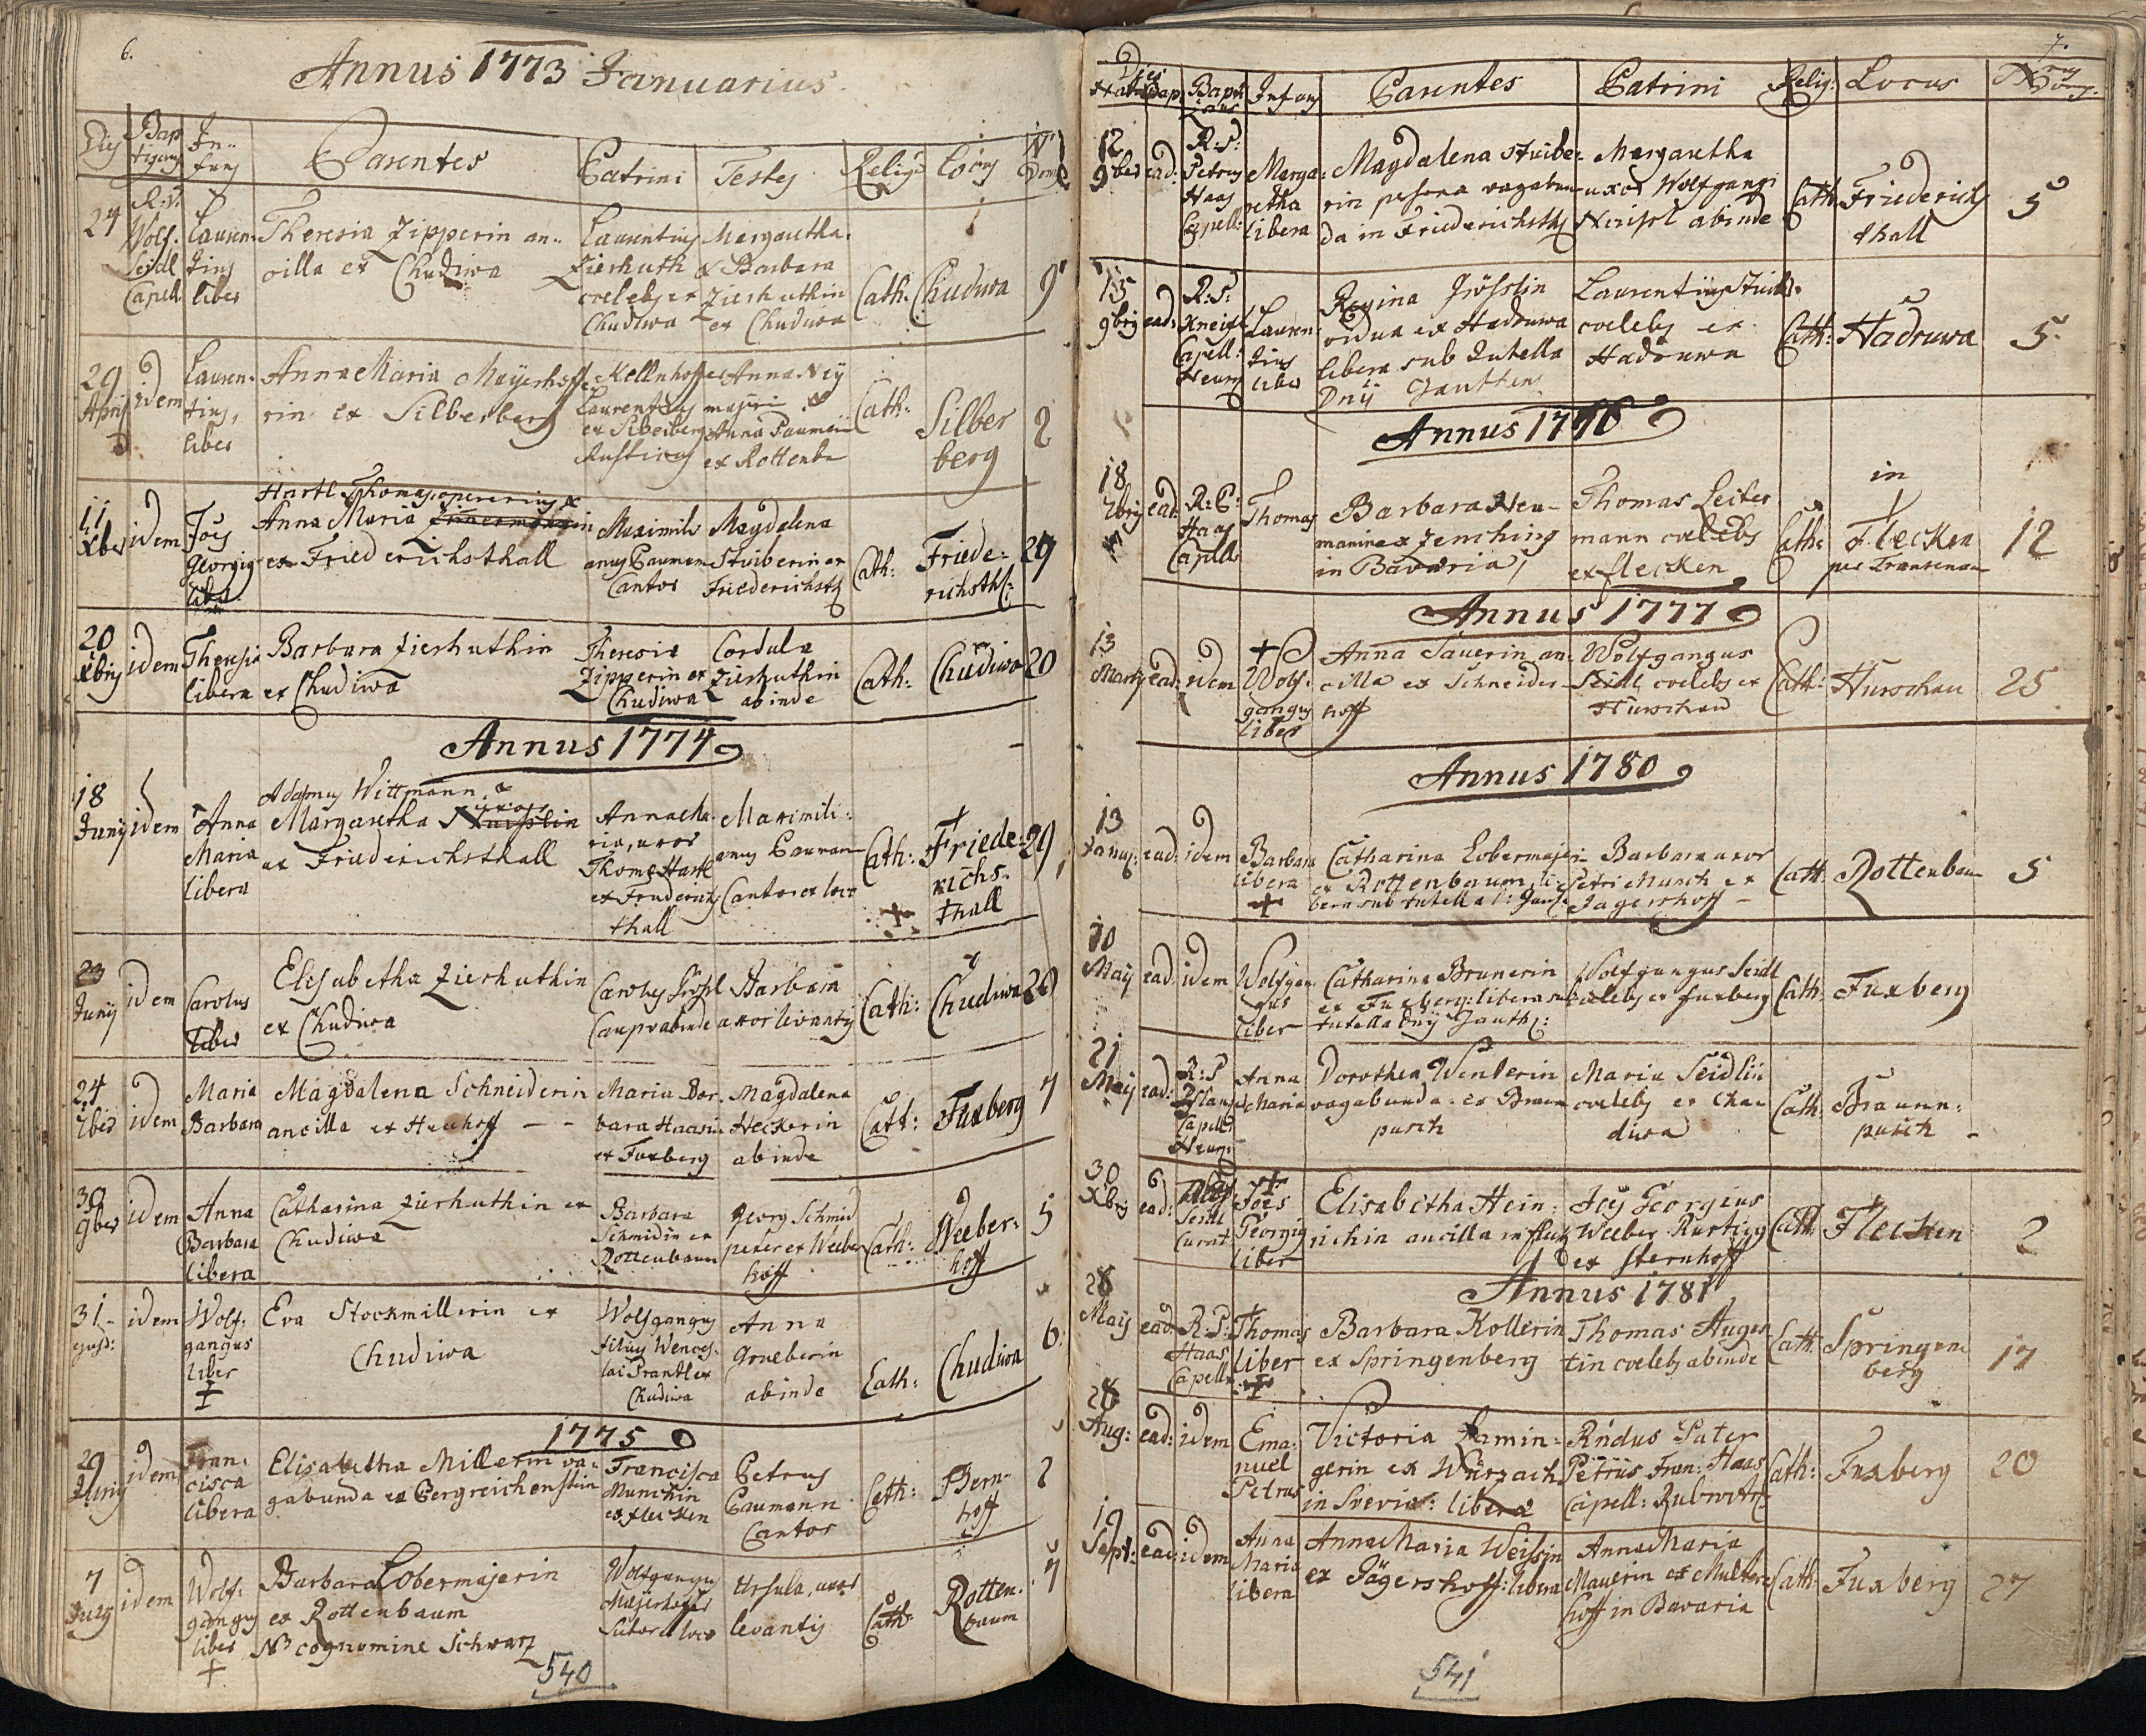 6.
Annus 1773 Januarius
Dies Bap tizans In- fans Parentes Patrini Testes Relig: Locus Nrus Domus
24 R.P. Wolf. Seidl Capell. Lauren- tius liber
Theresia Zipperin an-
cilla ex Chudiwa
Laurentius
Zierhuth
coelebs ex
Chudiwa
Margaretha
& Barbara
Zierhuthin
ex Chudiwa
Cath: Chudiwa 9
29 Aprilis idem Lauren- tius, liber
Anna Maria Mayerhoffe-
rin ex Silberberg
Kellnhofer
Laurentius
ex Silberberg
Rusticus
Anna
Anna Paumin
ex Rottenb
Cath: Silber
berg 2
11 Xbris idem Joes Georgius liber
Hartl Thomas operarius &
Anna Maria Zimermannin
ex Friederichsthall
Maximili-
anus Bauman
Cantor
Magdalena
Stuiberin ex
Friederichsth
Cath: Friede-
richsth: 29
20 Xbris idem Theresia libera
Barbara Zierhuthin
ex Chudiwa
Theresia
Zipperin ex
Chudiwa
Cordula
Zierhuthin
abinde
Cath: Chudiwa 20
Annus 1774
18 Junij idem Anna Maria libera
Adamus Wittmann &
Margaretha uxor
ex Friederichsthall
Anna Ma-
ria, uxor
Thomae Hartl
ex Friderichs
thall
Maximili-
anus Bauman
Cantor ex loco
Cath: Friede-
richs-
thall 29
23 Junij idem Carolus liber
Elisabetha Zierhuthin
ex Chudiwa
Carolus Jrösl
Caupo abinde
Barbara
uxor levantis
Cath: Chudiwa 20
24 7bris idem Maria Barbara
Magdalena Schneiderin
ancilla ex Heuhoff
Maria Bar-
bara Haasin
ex Fuxberg
Magdalena
Heckerin
abinde
Cath: Fuxberg 7
30 9bris idem Anna Barbara libera
Catharina Zierhuthin ex
Chudiwa
Barbara
Schmidin ex
Rottenbaum
Georg Schmid
peter ex Weeber
hoff
Cath: Weeber-
hoff 5
31 idem Wolf- gangus liber
Eva Stockmillerin ex
Chudiwa
Wolfgangus
filius Wences-
lai Prantl ex
Chudiwa
Anna
Grueberin
abinde
Cath: Chudiwa 6.
1775
29 Junij idem Fran- cisca libera
Elisabetha Millerin va-
gabunda ex Bergreichenstein
Francisca
Munchin
ex flecken
Petrus
Baumann
Cantor
Cath: Bern-
hoff 2
7 July idem Wolf- gangus liber
Barbara Lobermajerin
ex Rottenbaum
NB cognomine Schwarz
Wolfgangus
Majerhoffer
Sutor ex loco
Ursula, uxor
levantis
Cath: Rotten-
baum 7
540
7.
Dies Nati Bap. Bapti zans Infans Parentes Patrini Relig: Locus Nrus Domus
12 9bris ead: R:P: Petrus Haas Capell: Marga- retha libera
Magdalena Stuibe-
rin persona vagabun-
da in Friederichsth
Margaretha
uxor Wolfgangi
abinde
Cath: Friederichs
thall 5
15 9bris ead: R:P: Kneisl Capell: Neurn Lauren- tius liber
Regina Jrösslin
vidua ex Hadruwa
libera sub tutella
Dnij Janthen
Laurentius Stuib
coelebs ex
Hadruwa
Cath: Hadruwa 5.
Annus 1776
18 7bris ead: R:P: Haas Capell: Thomas
Barbara Neu-
mannin ex Zenching
in Bavaria
Thomas Leiter
mann coelebs
ex flecken
Cath: in
Flecken 12
Annus 1777
13 Martij ead: idem Wolf- gangus liber
Anna Sauerin an-
cilla ex Schneider-
hoff
Wolfgangus
Seidl coelebs ex
Hurschau
Cath: Hurschau 25
Annus 1780
13 Januj: ead: idem Barbara libera
Catharina Lobermajerin
ex Rottenbaum, li-
bera sub tutella
Barbara uxor
Petri Munch ex
Jagershoff
Cath: Rottenbaum 5
10 Maij ead: idem Wolfgan- gus liber
Catharina Brunerin
ex Fuxberg: libera sub
tutella Dnij Janth:
Wolfgangus Seidl
coelebs ex fuxberg
Cath: Fuxberg
21 Maij ead: R:P Capell: Neurn: Anna Maria
Dorothea Winterin
vagabunda ex Braun
pusch
Maria Seidlin
coelebs ex Chu
diwa
Cath: Braunn-
pusch
30 Xbris ead: Wolf Seidl Curat Joes Georgius liber
Elisabetha Hein-
richin ancilla in fleck
Joes Georgius
Weeber Rusticus
ex Sternhoff
Cath: Flecken 2
Annus 1781
28 Maij ead: R:P: Haas Capell: Thomas liber
Barbara Kollerin
ex Springenberg
Thomas Augus
tin coelebs abinde
Cath: Springen-
berg 17
28 Aug: ead: idem Ema- nuel Petrus
Victoria Lamin-
gerin ex Wurzach
in Svevia: libera
Rndus Pater
Petrus Fran: Haas
Capell:
Cath: Fuxberg 20
19 Sept: ead: idem Anna Maria libera
Anna Maria Weissin
ex Jägershoff: libera
Anna Maria
Mauerin ex Multer-
hoff in Bavaria
Cath: Fuxberg 27
541